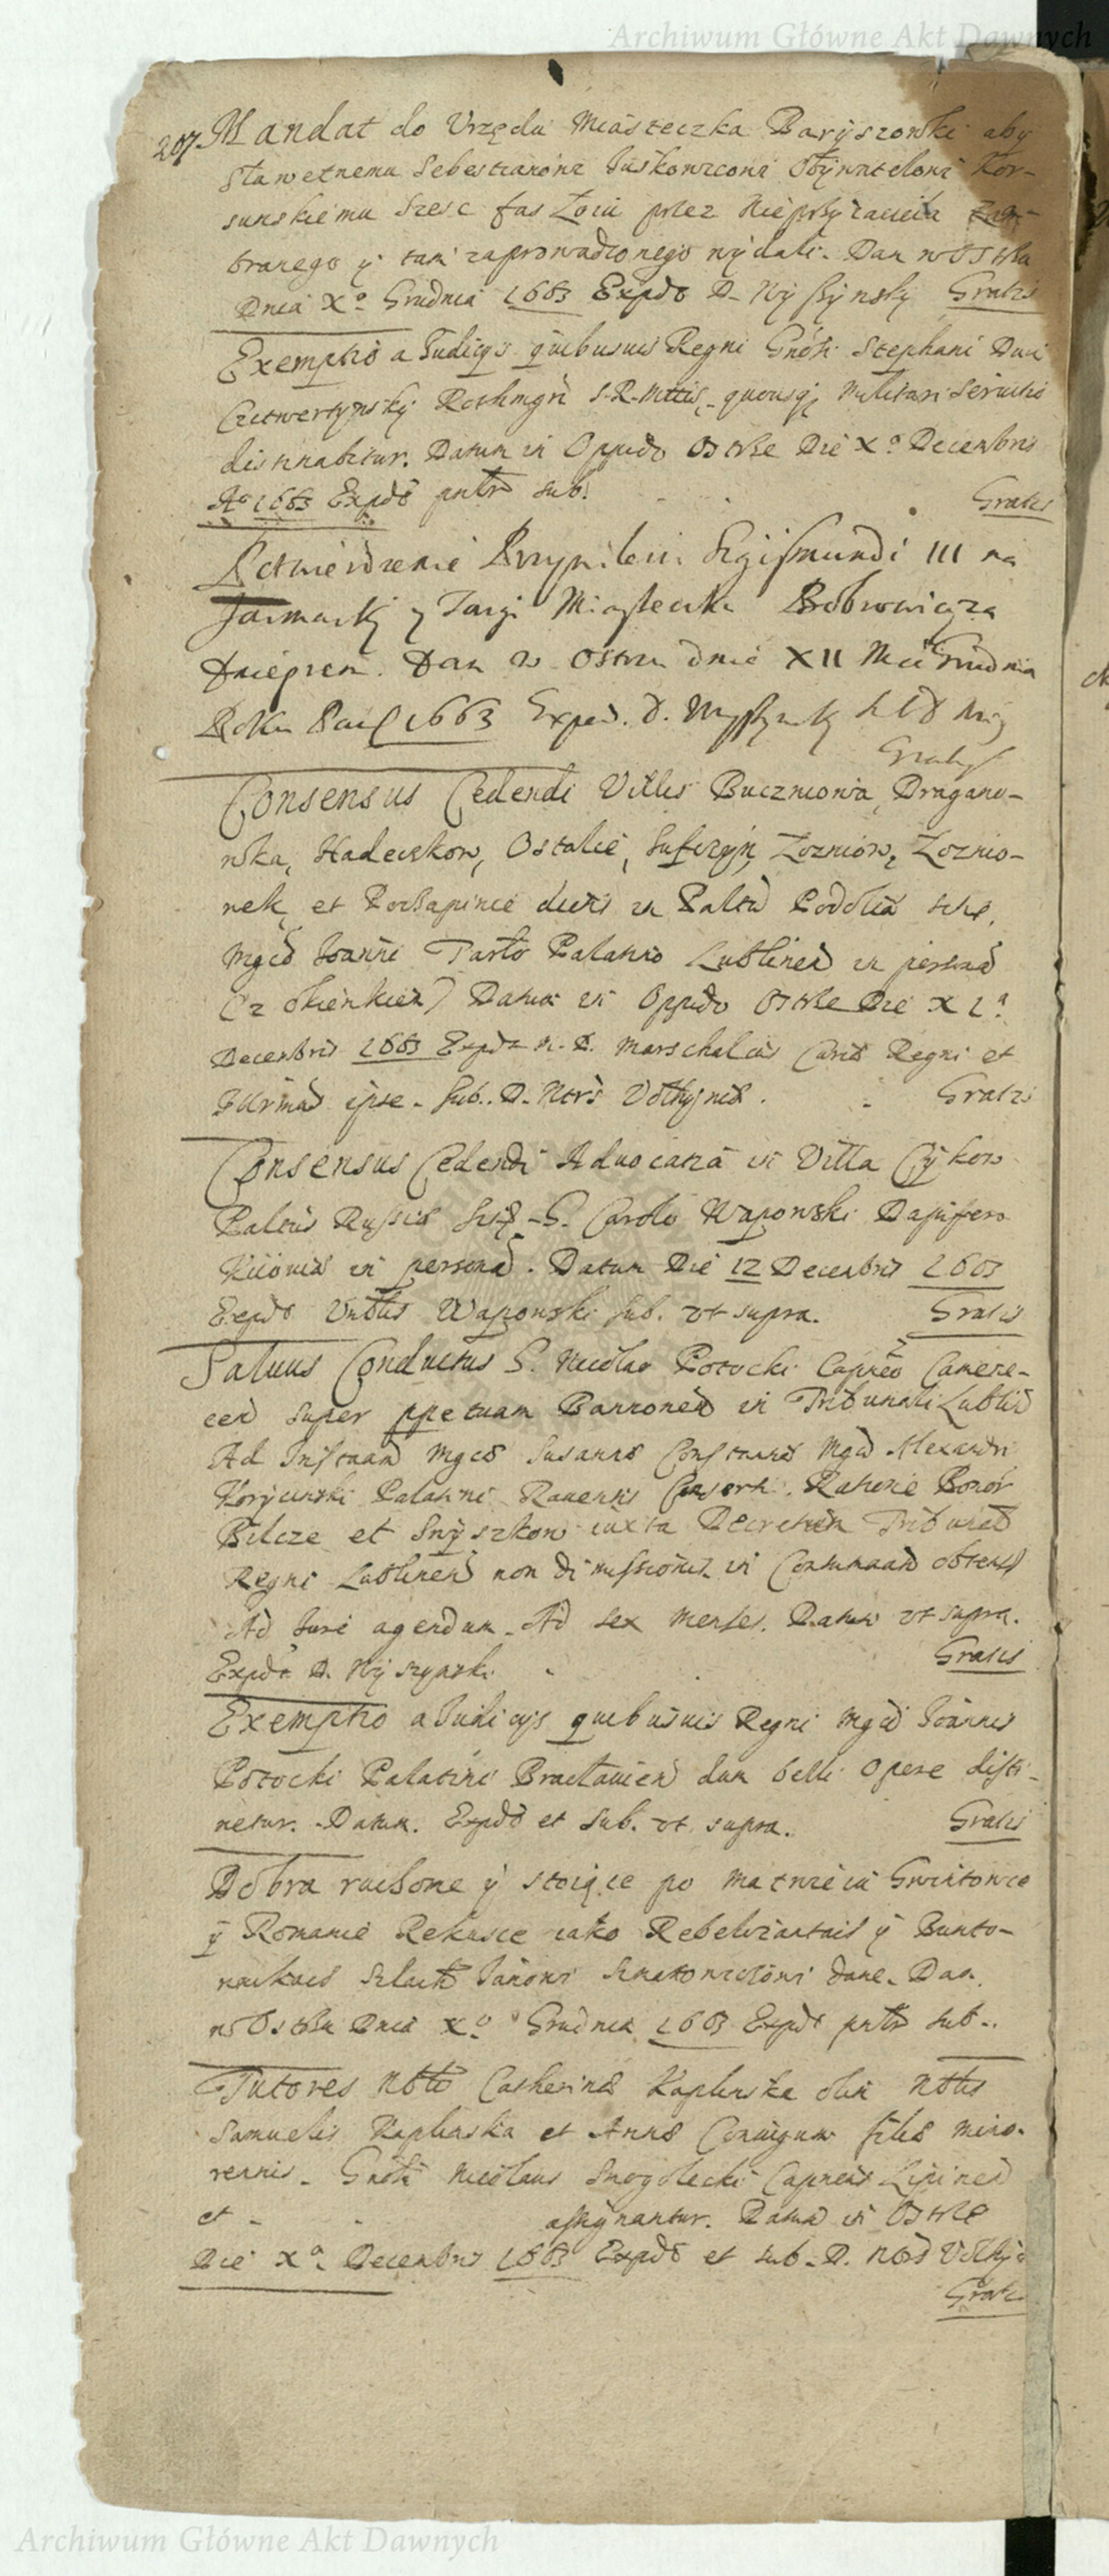 Archiwum Główne Akt Dawnych
207. Mandat do Vrzędu Miasteczka Baryszowki aby
Sławetnemu Sebestianowi Juskowicowi Obywatelowi Kor-
sunskiemu szesc fas Łoiu przez Nieprzyiaciela
branego y tam zaprowadzonego wydali. Dan w Ostrzu
Dnia Xº Grudnia 1663 Expdo D. Wyszynsky Gratis
Exemptio a Judicijs quibusuis Regni Gnosi Stephani Duci
Czetwertynsky Rothmgri S. R. Mttis, quousq; Militari Seruitio
distinabitur. Datum in Oppido Ostrze Die Xº Decembris
Aº 1663 Expdo pntr sub. Gratis
Potwierdzenie Przywileiu Sigismundi III na
Jarmarki y Targi Miasteczka Bobrowicza
Dnieprem. Dan w Ostrzu dnia XII Mca Grudnia
Roku Pań 1663 Exped. d. Wyszynsky
Gratis
Consensus Cedendi Villis Buczniowa, Dragano-
wka, Hadeczkow, Ostalce, Suszczyn, Zozniow, Zoznio-
nek, et Poczapince dictis in Paltu Podolia
Mgco Joanni Tarło Palatino Lublinen in person
Datum in Oppido Ostrze Die X
Decembris 1663 Expdt M. D. Marschalcus Curiæ Regni et
ipse. Sub. D. Ntrs Volhyniæ. Gratis
Consensus Cedendi Aduocatia in Villa Cykow
Paltus Russiæ G. Carolo Waponski Dapifero
Kiiouiæ in person. Datum Die 12 Decembris 1663
Expdo Vrbtus Waponski sub. vt supra. Gratis
Saluus Conductus G. Nicolao Potocki Capneo Camene-
cen super ppetuam Bannonem in Tribunali Lublin
Ad Instaan Mgcæ Susannæ Constantiæ Mgci Alexandri
Koryciński Palatini Rauensis Consorti. Ratione Bonor
Bilcze et Snyszkow iuxta Decretum Tribunal
Regni Lublinen non dimissionis in Contumaan obtent
Ad Jure agendum. Ad sex menses. Datum vt supra.
Expdt D. Wyszynski. Gratis
Exemptio a Judicijs quibusuis Regni Mgci Joannis
Potocki Palatini Braclauien dum belli opere disti-
netur. Datum. Expdt et sub. vt supra. Gratis
Dobra ruchome y stoiące po Matwieiu Gwintowce
y Romanie Rekusce iako Rebelizantach y Bunto-
wnikach szlach Janowi dane. Dan.
w Ostrzu Dnia Xº Grudnia 1663 Expdt pntr sub.
Tutores Nobli Catherinæ Kaplinska olim Nobls
Samuelis Kaplinska et Annæ Coniugum filiæ mino-
rennis. Gnosi Nicolaus Smogolecki Capneus Lipinen
et - - assignantur. Datum in Ostrze
Die Xª Decembris 1663 Expdt et sub. D. Volhyniæ
Gratis
Archiwum Główne Akt Dawnych